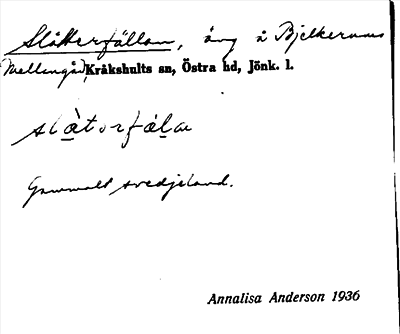 Slåtterfällan, äng å Bjelkerums
Mellangård, Kråkshults sn, Östra hd, Jönk. l.
slàtorfäla
Gammalt svedjeland.
Annalisa Anderson 1936